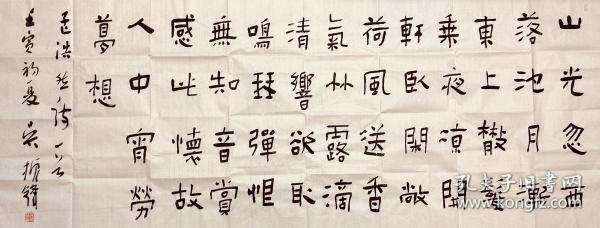 山光忽西
落池月漸
東上散髮
乘夜涼開
軒臥閑敞
荷風送香
氣竹露滴
清響欲取
鳴琴彈恨
無知音賞
感此懷故
人中宵勞
夢想
孟浩然詩一首
壬寅初夏吳振鋒
孔夫子旧书网